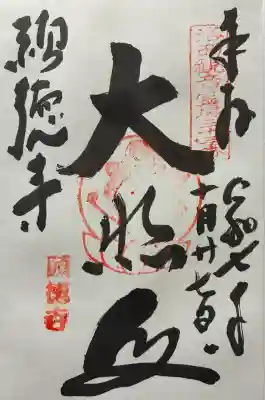 奉拝
令和七年
十月廿七日
大悲殿
願徳寺